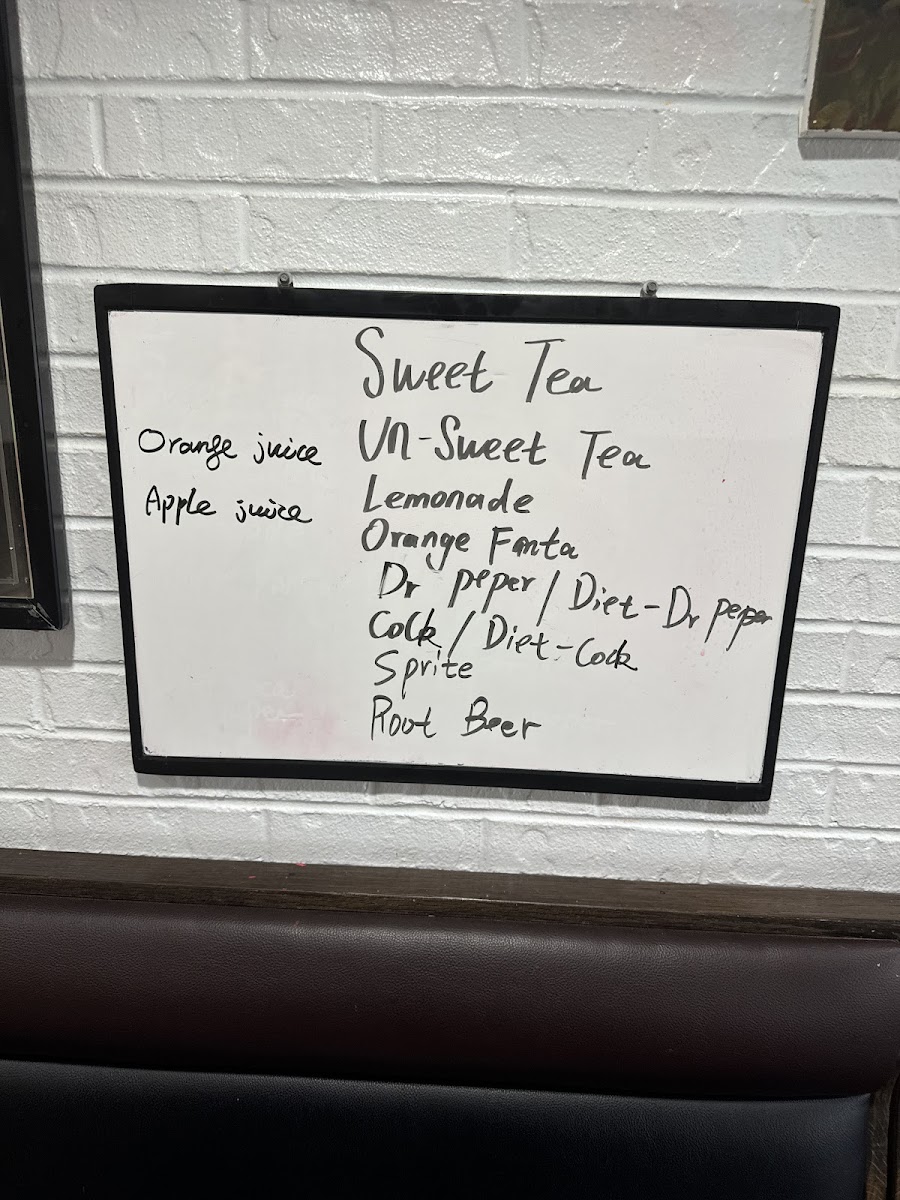 Sweet Tea
Un-Sweet Tea
Lemonade
Orange Fanta
Dr peper / Diet-Dr peper
Cock / Diet-Cock
Sprite
Root Beer
Orange juice
Apple juice